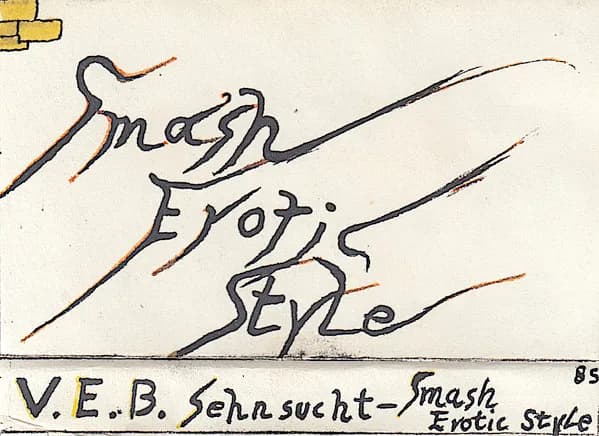 Smash
Erotic
Style
85
V.E.B. Sehnsucht - Smash
Erotic Style